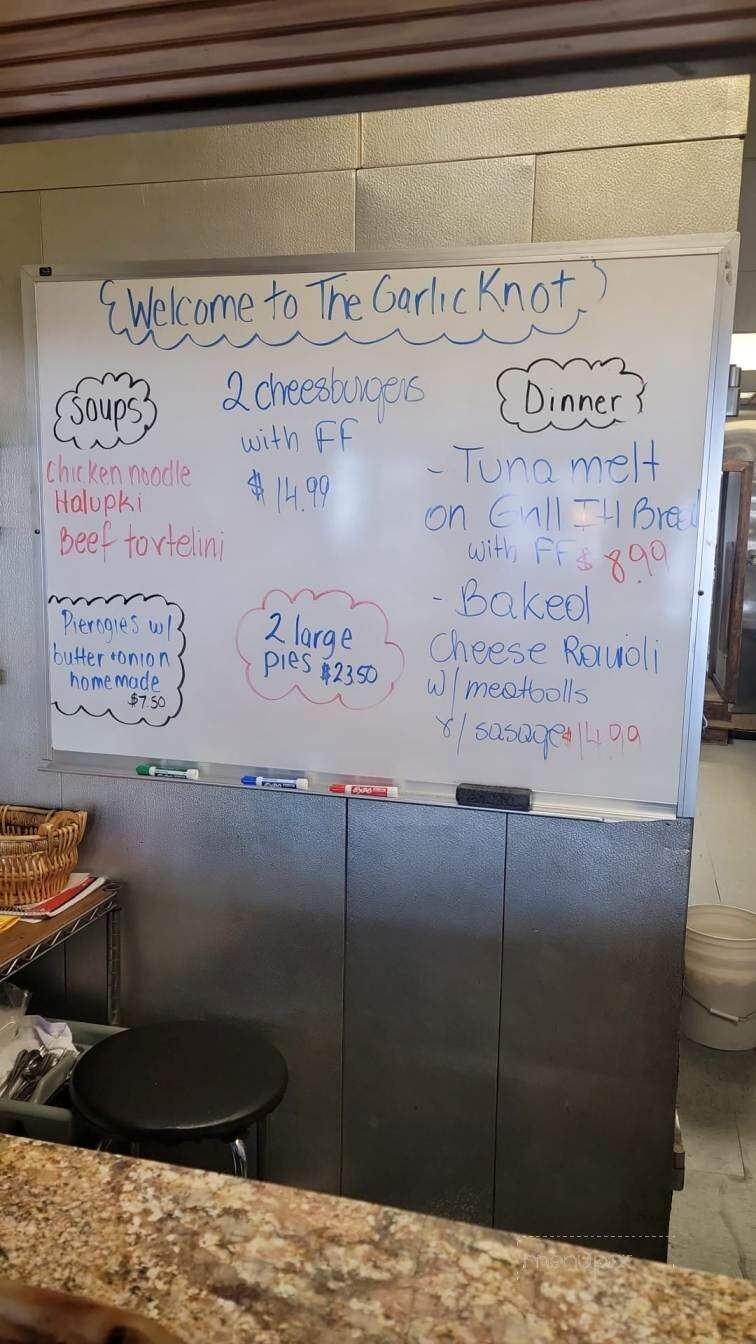 Welcome to The Garlic Knot
Soups
Chicken noodle
Halupki
Beef tortelini
2 cheesburgers
with FF
$14.99
Dinner
- Tuna melt
on Grill Itl Bread
with FF $8.99
- Baked
Cheese Ravioli
w/ meatballs
r/ sasage $14.99
Pierogies w/
butter + onion
homemade
$7.50
2 large
pies $23.50
menupix